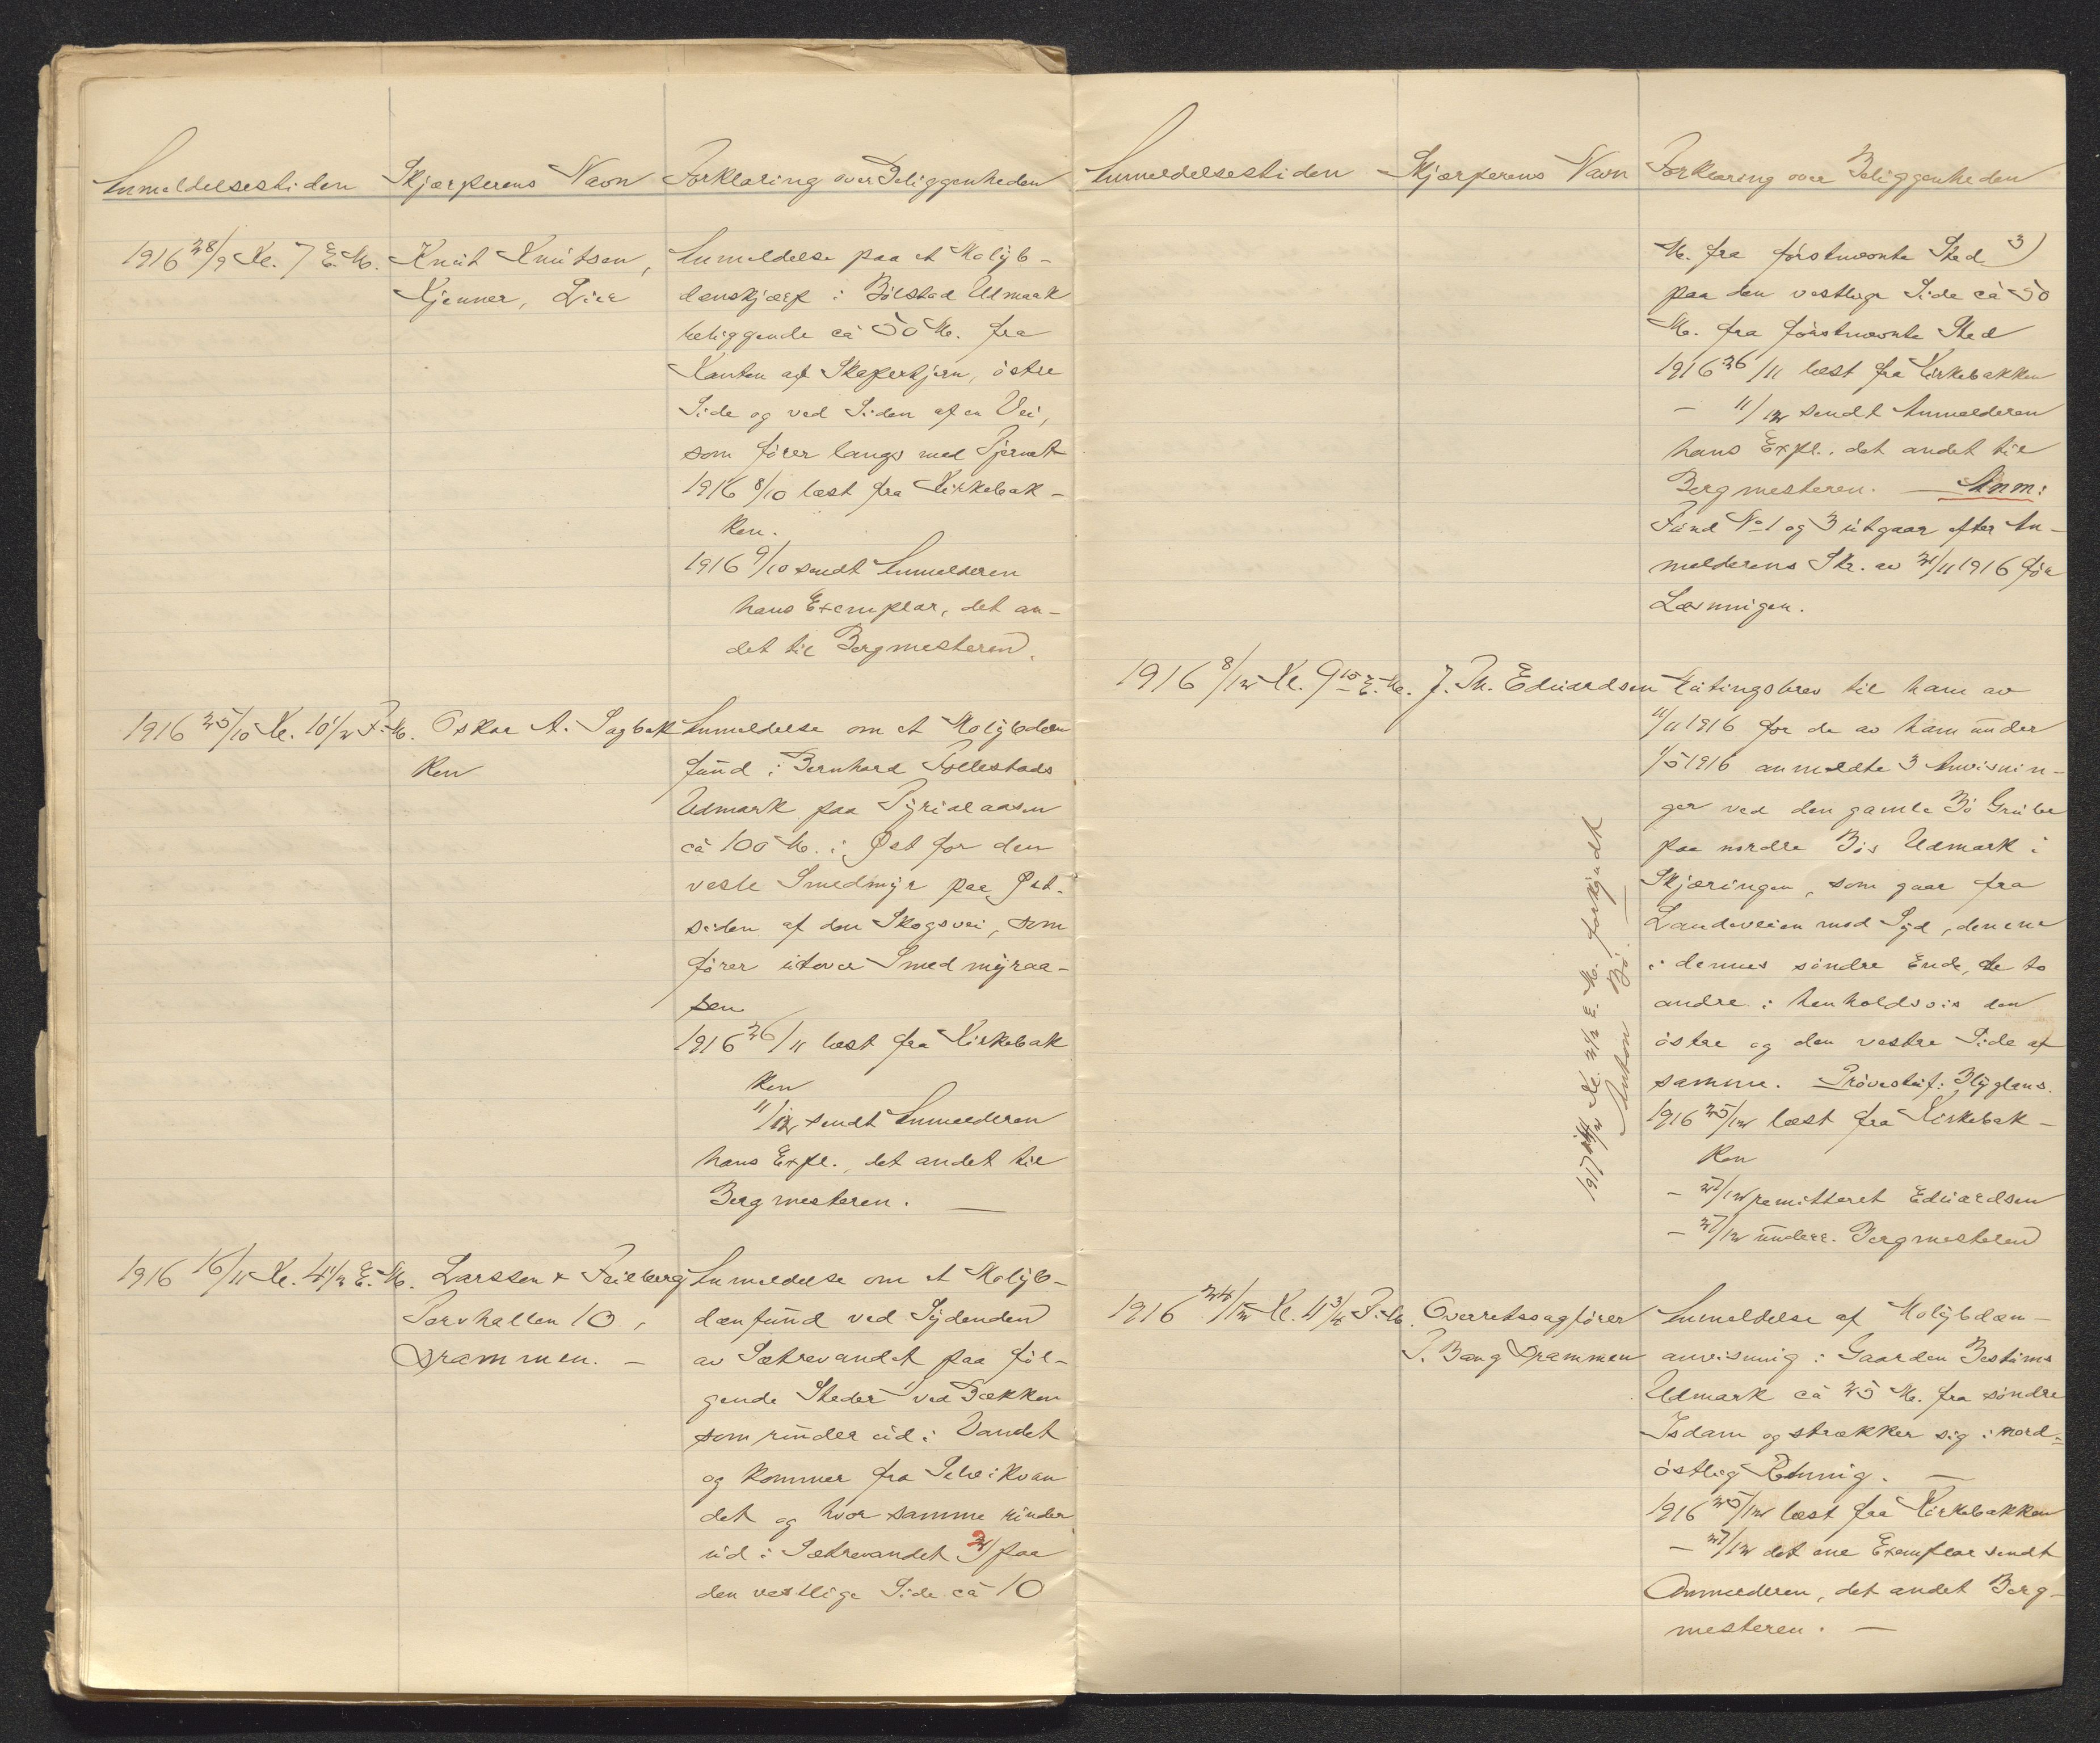 Anmeldelsestiden Skjærperens Navn Forklaring over Beliggenheden
1916 28/9 Kl. 7 E.M. Knut Knutsen, Anmeldelse paa et Molyb-
Kjenner, Lier danskjærp i Bölstad Utmark
beliggende ca 50 M. fra
Kanten af Skapertjern, östre
Side og ved Siden af en Vei,
som förer langs med Tjernet
1916 8/10 læst fra Kirkebak-
ken.
1916 9/10 sendt Anmelderen
hans Exemplar, det an-
det til Bergmesteren.
1916 25/10 Kl. 10 1/2 F.M. Oskar A. Sagbak Anmeldelse om et Molybden
ken fund i Bernhard Tollestads
Udmark paa Tyrialaasen
ca 100 M. i Øst for den
vesle Smedmyr paa Øst-
siden af den Skogsvei, som
förer utover Smedmyraa-
sen
1916 26/11 læst fra Kirkebak
ken
11/12 sendt Anmelderen
hans Expl., det andet til
Bergmesteren. —
1916 16/11 Kl. 4 1/2 E.M. Larssen & Freiberg Anmeldelse om et Molyb-
10, dænfund ved Sydenden
Drammen. — av Sætrevandet paa föl-
gende Steder 1 ved Bækken
som rinder ud i Vandet
og kommer fra Selvikvan
det og hvor samme rinder
ud i Sætrevandet 2) paa
den vestlige Side ca 10
Anmeldelsestiden Skjærperens Navn Forklaring over Beliggenheden
M. fra förstnævnte Sted 3)
paa den vestlige Side ca 50
M. fra förstnævnte Sted
1916 26/11 læst fra Kirkebakken
— 11/12 sendt Anmelderen
hans Expl., det andet til
Bergmesteren. — Anm:
Fund No 1 og 3 utgaar efter An-
melderens Skr. av 21/11 1916 för
Læsningen.
1916 8/12 Kl. 9 15 E.M. J. Th. Eduardsen Mutingsbrev til ham av
11/11 1916 for de av ham under
1/5 1916 anmeldte 3 Anvisnin-
ger ved den gamle Bö Grube
paa nordre Bös Udmark i
Skjæringen, som gaar fra
Landeveien mod Syd, den ene
i dennes söndre Ende, de to
andre i henholdsvis den
östre og den vestre Side af
samme. Prövestuf: Blyglans.
1916 25/12 læst fra Kirkebak-
ken
— 27/12 remitteret Eduardsen
— 27/12 underr. Bergmesteren
1917 Kl. E.M. forkyndt
Anton Bö.
1916 24/12 Kl. 11 3/4 F.M. Overretssagförer Anmeldelse af Molybdæn-
P. Bang Drammen anvisning i Gaarden Bestums
Udmark ca 25 M. fra söndre
Isdam og strækker sig i nord-
östlig Retning. —
1916 25/12 læst fra Kirkebakken
— 27/12 det ene Exemplar sendt
Anmelderen, det andet Berg-
mesteren. —